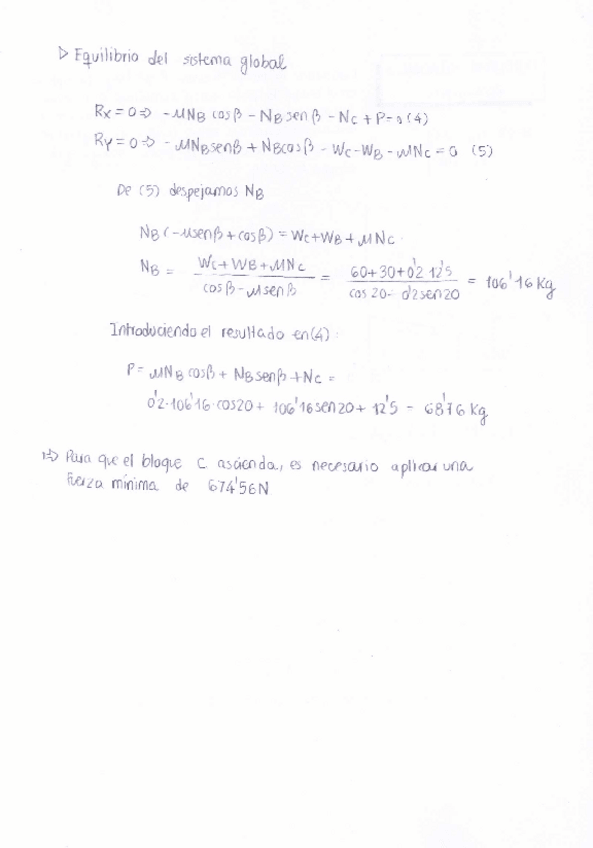 ▷ Equilibrio del sistema global
Rx = 0 => -μNB cosβ - NB senβ - Nc + P = 0 (4)
Ry = 0 => -μNB senβ + NB cosβ - Wc - WB - μNc = 0 (5)
De (5) despejamos NB
NB (-μsenβ + cosβ) = Wc + WB + μNc
NB = (Wc + WB + μNc) / (cosβ - μsenβ) = (60 + 30 + 0'2 · 12'5) / (cos 20 - 0'2 sen 20) = 106'16 Kg
Introduciendo el resultado en (4):
P = μNB cosβ + NB senβ + Nc =
0'2 · 106'16 · cos 20 + 106'16 sen 20 + 12'5 = 68'76 Kg
=> Para que el bloque C ascienda, es necesario aplicar una
fuerza mínima de 674'56 N